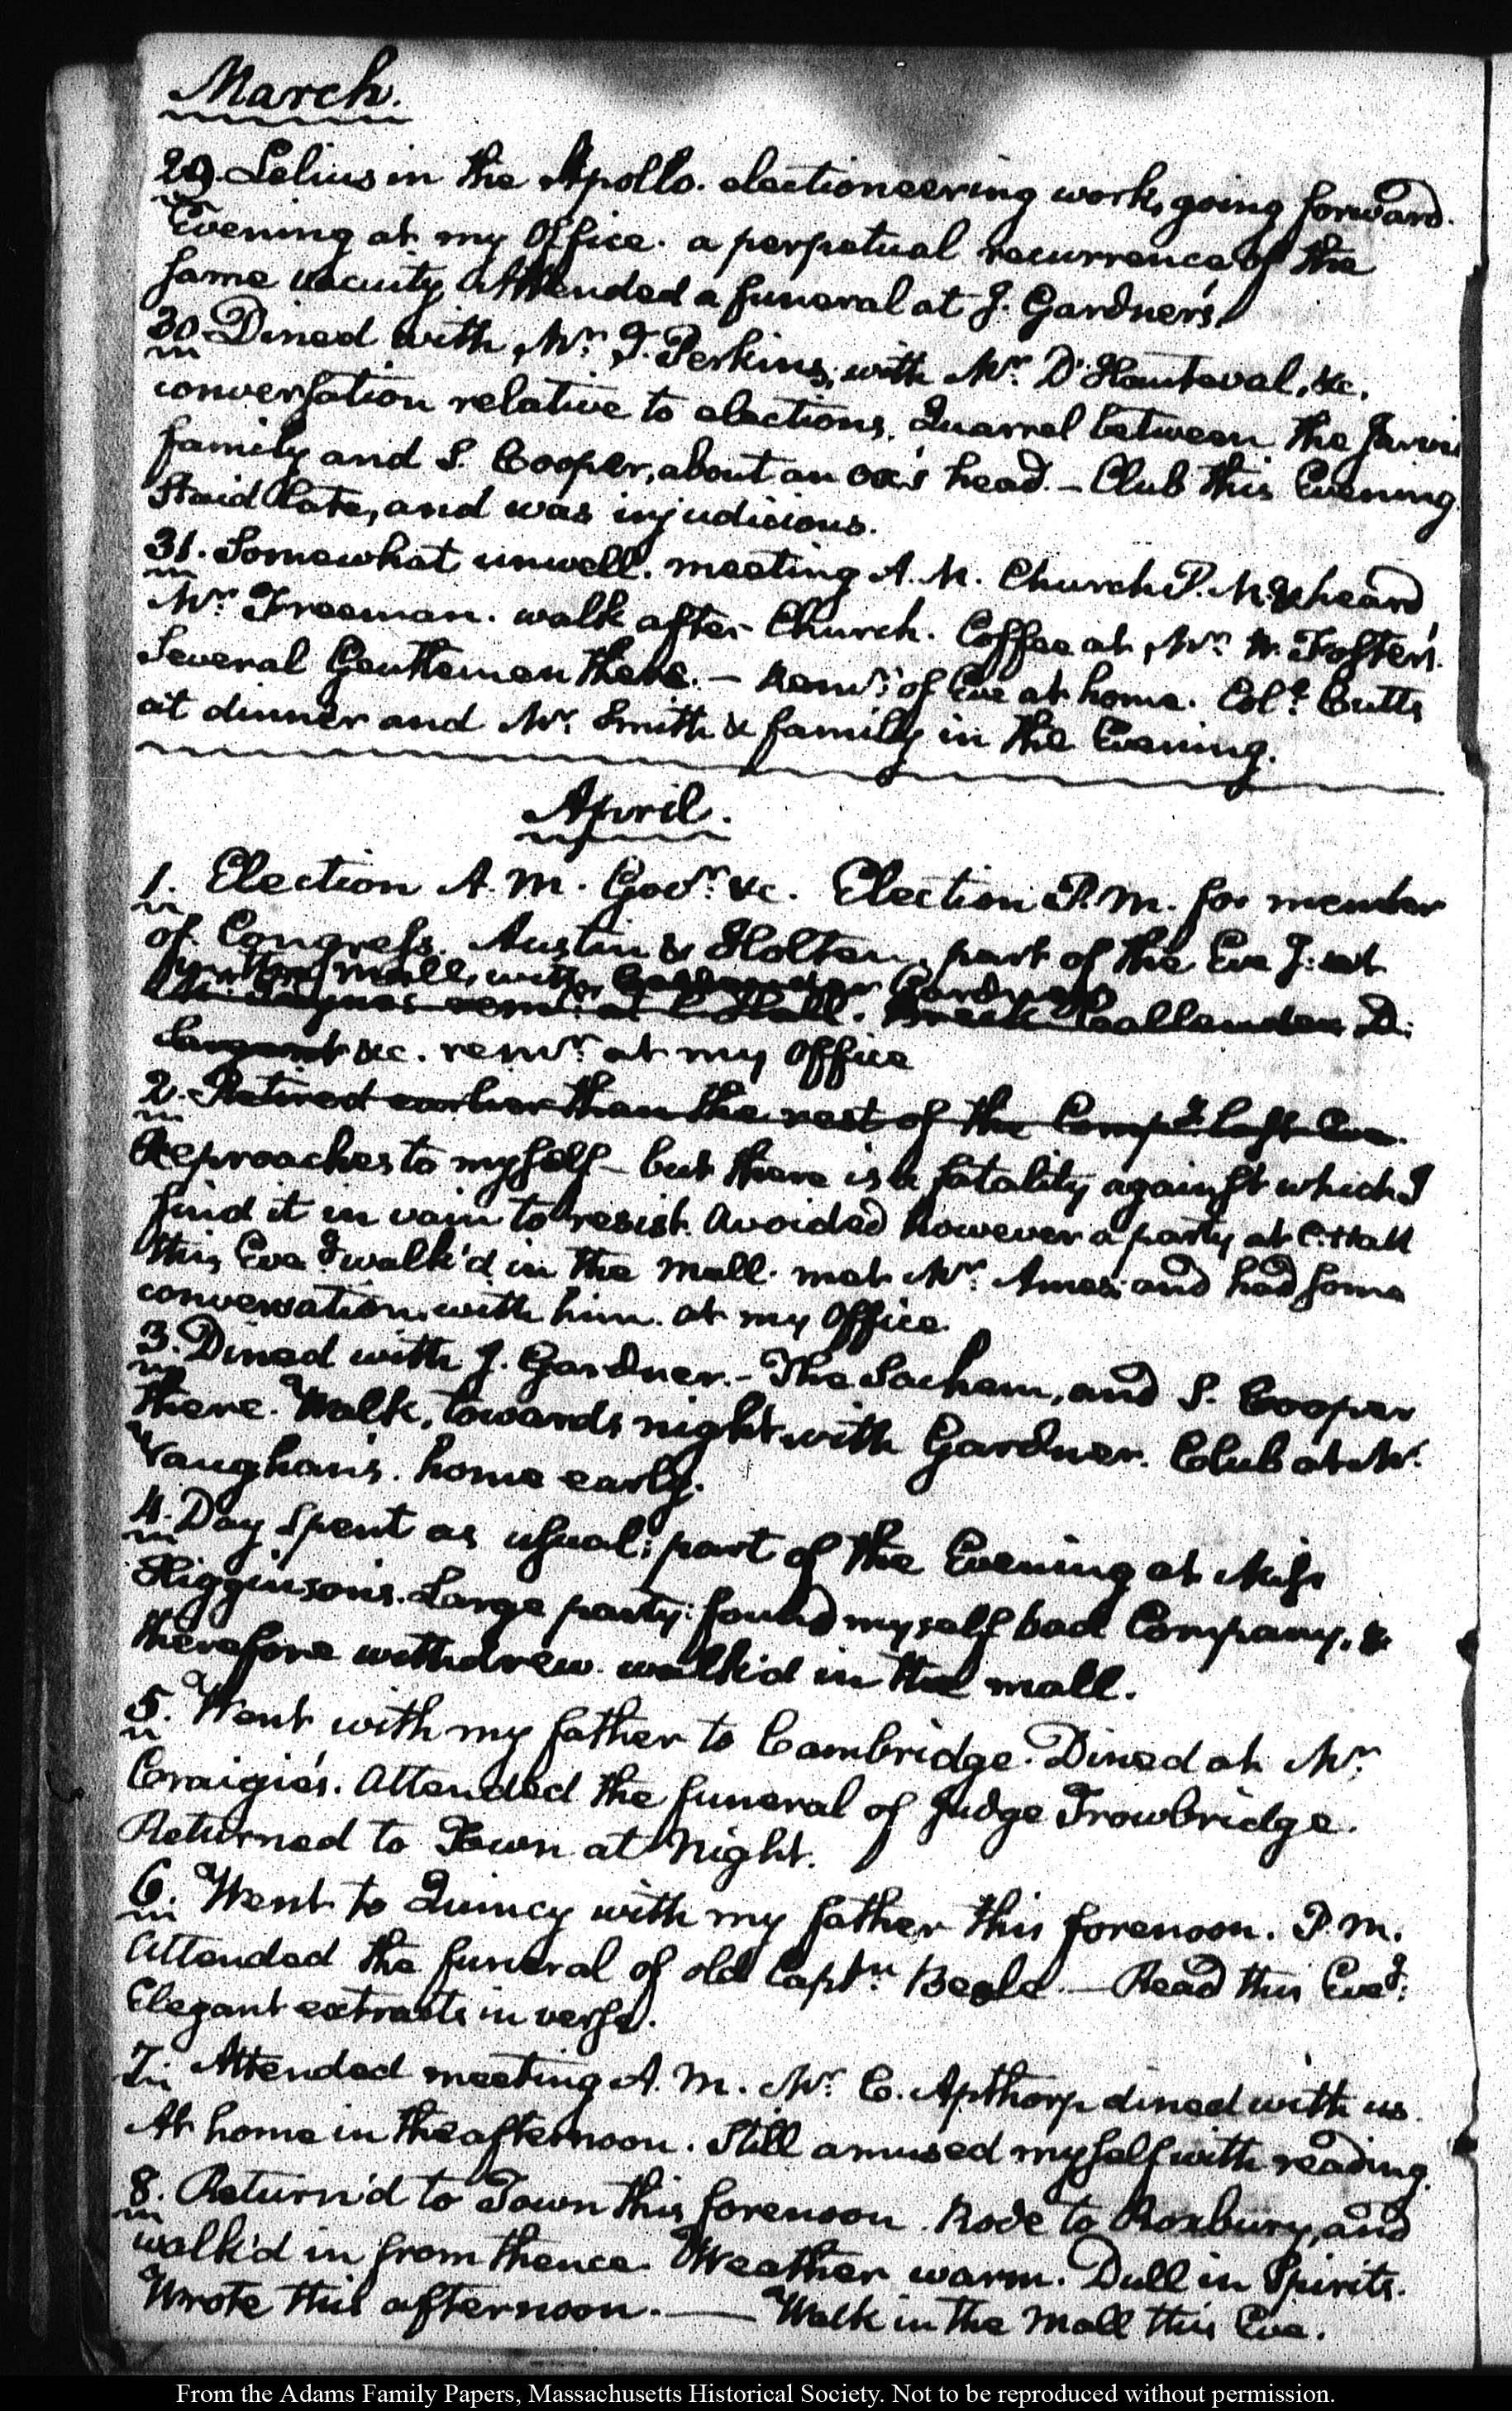 March.
29. Lelius in the Apollo. electioneering work, going forward.
Evening at my Office. a perpetual recurrence of the
same vacuity. Attended a funeral at J. Gardner's.
30. Dined with Mr. T. Perkins, with Mr. D'Hauteval, &c.
conversation relative to elections. Quarrel between the Jarvis
family and S. Cooper, about an ox's head. — Club this Evening
Staid late, and was injudicious.
31. Somewhat unwell. meeting A. M. Church P. M. & heard
Mr. Freeman. walk after Church. Coffee at Mr. W. Foster's.
Several Gentlemen there. — remr. of Eve at home. Coll. Cutts
at dinner and Mr. Smith & family in the Evening.
April.
1. Election A. M. Govr. &c. Election P. M. for member
of Congress. Austin & Holten, part of the Eve J:
mall, with Gardner
remr. at C Hall. Callender D.
&c. remr. at my Office
2. Retired earlier than the rest of the Compy. last Eve.
Reproaches to myself — but there is a fatality against which I
find it in vain to resist. Avoided however a party at C. Hall
this Eve & walk'd in the Mall. met Mr. Ames and had some
conversation with him. at my Office.
3. Dined with J. Gardner. — The Sachem, and S. Cooper
there. Walk, towards night with Gardner. Club at W.
Vaughan's. home early.
4. Day spent as usual; part of the Evening at Miss
Higginson's. Large party: found myself bad Company, &
therefore withdrew. walk'd in the mall.
5. Went with my father to Cambridge. Dined at Mr.
Craigie's. Attended the funeral of Judge Trowbridge.
Returned to Town at Night.
6. Went to Quincy with my father this forenoon. P. M.
Attended the funeral of old Captn. Beale. — Read this Eveg.
Elegant extracts in verse.
7. Attended meeting A. M. Mr. C. Apthorp dined with us.
At home in the afternoon. Still amused myself with reading.
8. Return'd to Town this forenoon. Rode to Roxbury, and
walk'd in from thence. Weather warm. Dull in Spirits.
Wrote this afternoon. — Walk in the Mall this Eve.
From the Adams Family Papers, Massachusetts Historical Society. Not to be reproduced without permission.